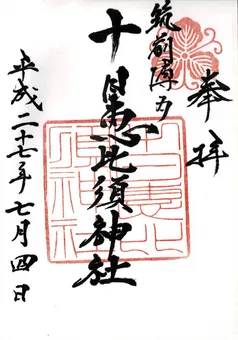 奉拝
筑前博多
十日恵比須神社
平成二十七年七月四日
十日恵比須神社